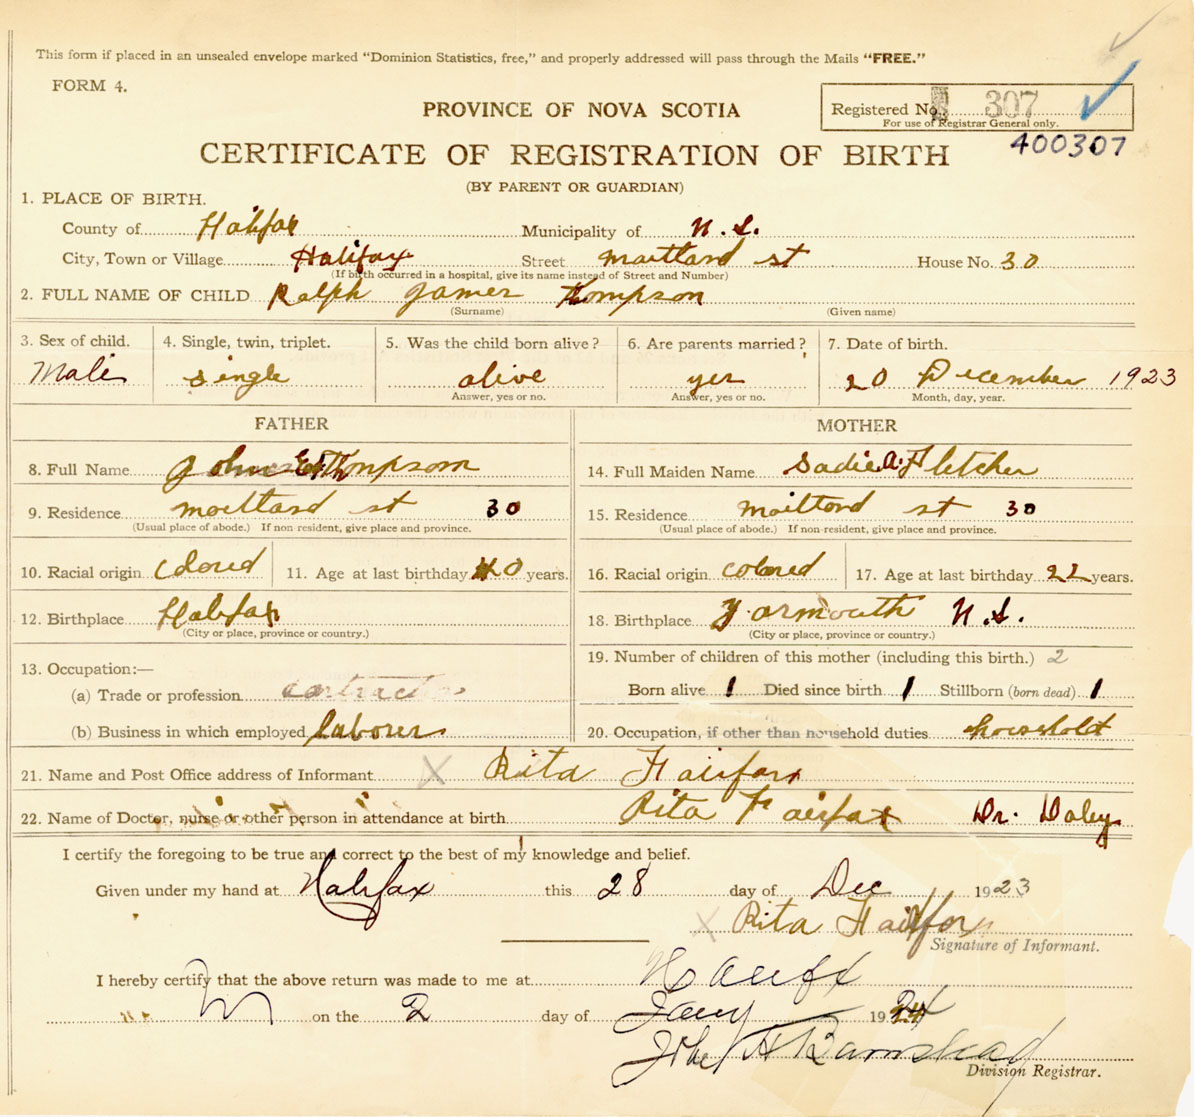 This form if placed in an unsealed envelope marked “Dominion Statistics, free,” and properly addressed will pass through the Mails “FREE.”
FORM 4.
Registered No. 307
For use of Registrar General only.
PROVINCE OF NOVA SCOTIA
400307
CERTIFICATE OF REGISTRATION OF BIRTH
(BY PARENT OR GUARDIAN)
1. PLACE OF BIRTH.
County of Halifax Municipality of N.S.
City, Town or Village Halifax Street Maitland st House No. 30
(If birth occurred in a hospital, give its name instead of Street and Number)
2. FULL NAME OF CHILD Ralph James Thompson
(Surname) (Given name)
3. Sex of child. 4. Single, twin, triplet. 5. Was the child born alive? 6. Are parents married? 7. Date of birth.
Male single alive yes 20 December 1923
Answer, yes or no. Answer, yes or no. Month, day, year.
FATHER MOTHER
8. Full Name John Thompson 14. Full Maiden Name Sadie A. Fletcher
9. Residence moitland st 30 15. Residence maitland st 30
(Usual place of abode.) If non resident, give place and province. (Usual place of abode.) If non-resident, give place and province.
10. Racial origin colored 11. Age at last birthday 40 years. 16. Racial origin colored 17. Age at last birthday 22 years.
12. Birthplace Halifax 18. Birthplace Yarmouth N.S.
(City or place, province or country.) (City or place, province or country.)
13. Occupation:— 19. Number of children of this mother (including this birth.) 2
(a) Trade or profession contractor Born alive 1 Died since birth 1 Stillborn (born dead) 1
(b) Business in which employed laborer 20. Occupation, if other than household duties household
21. Name and Post Office address of Informant X Rita Fairfax
22. Name of Doctor, nurse or other person in attendance at birth Rita Fairfax Dr. Daley
I certify the foregoing to be true and correct to the best of my knowledge and belief.
Given under my hand at Halifax this 28 day of Dec 1923
X Rita Fairfax
Signature of Informant.
I hereby certify that the above return was made to me at Halifax
on the 2 day of Jany 1924
Division Registrar.